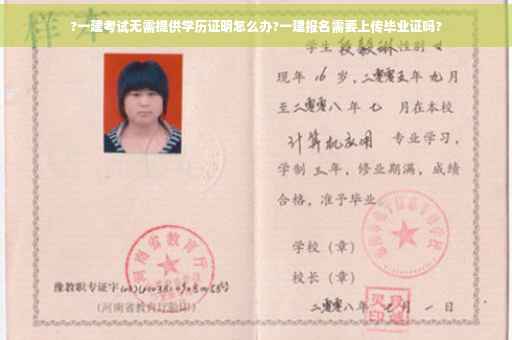 ?一建考试无需提供学历证明怎么办?一建报名需要上传毕业证吗?
样本
学生段毅琳性别女
现年16岁,二零零五年九月
至二零零八年七月在本校
计算机应用 专业学习,
学制三年,修业期满,成绩
合格,准予毕业
学校(章)
校长(章)
二零零八年 月一日
河南省教育厅
豫教职专证字
(河南省教育厅验印)